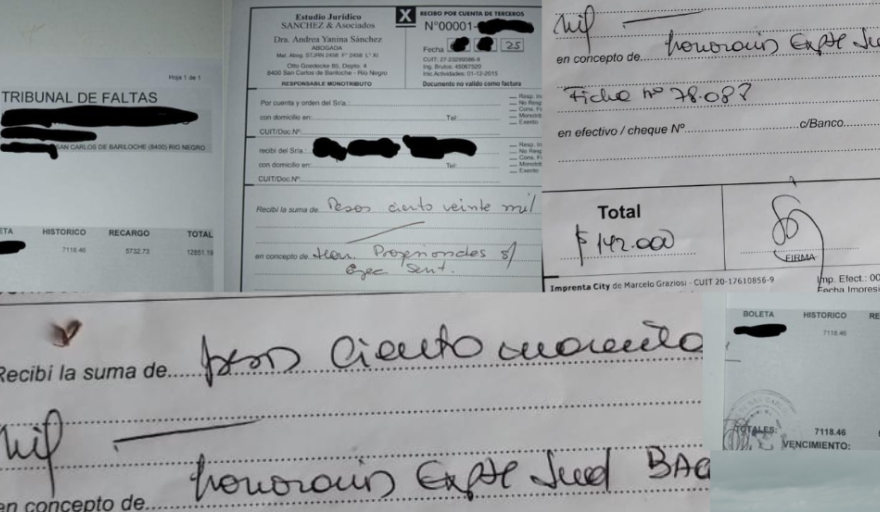 Hoja 1 de 1
TRIBUNAL DE FALTAS
SAN CARLOS DE BARILOCHE (8400) RIO NEGRO
ETA HISTORICO RECARGO TOTAL
7118.46 5732.73 12851.19
Estudio Jurídico
SANCHEZ & Asociados
Dra. Andrea Yanina Sánchez
ABOGADA
Otto Goedecke 85, Depto. 4
8400 San Carlos de Bariloche - Río Negro
RESPONSABLE MONOTRIBUTO
X
RECIBO POR CUENTA DE TERCEROS
N°00001-
Fecha 25
Inic. Actividades: 01-12-2015
Documento no válido como factura
Por cuenta y orden del Sr/a.:
con domicilio en: Tel:
CUIT/Doc.N°:
recibí del Sr/a.:
con domicilio en: Tel:
CUIT/Doc.N°:
Recibí la suma de Pesos ciento veinte mil
en concepto de Hon. s/
Ejec Sent.
mil
en concepto de honorarios Expte Jud
Ficha n° 78.087
en efectivo / cheque N° c/Banco
Total
$ 142.000
FIRMA
Imprenta City de Marcelo Graziosi - CUIT 20-17610856-9
Imp. Efect.: 00
Fecha Impresi
Recibí la suma de pesos ciento
mil
en concepto de honorarios Expte Jud
BOLETA HISTORICO RE
7118.46
TOTALES: 7118.46
VENCIMIENTO: